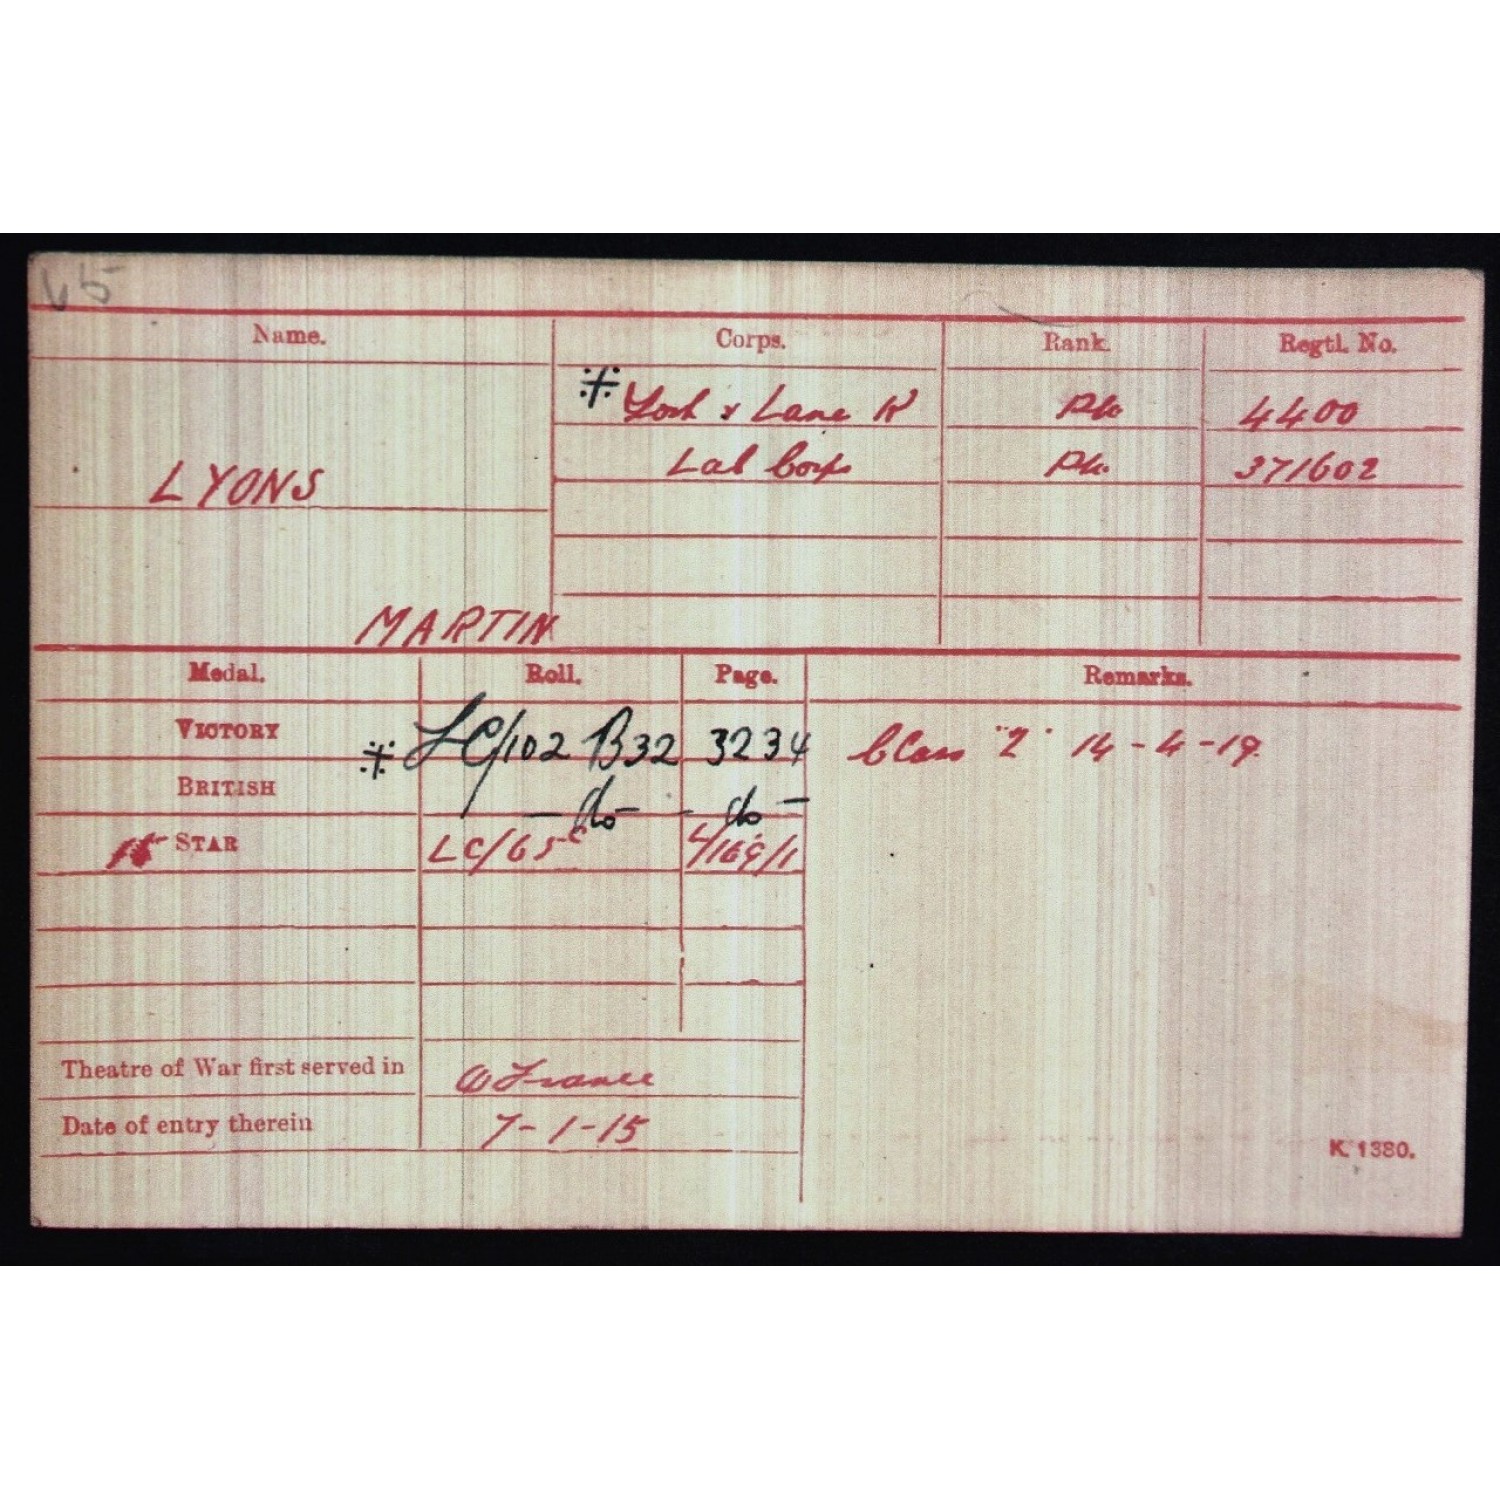 V5
Name. Corps. Rank. Regtl. No.
※ York & Lanc R Pte 4400
LYONS Lab Corps Pte. 371602
MARTIN
Medal. Roll. Page. Remarks.
VICTORY ※ LC/102 B32 3234 Class "Z" 14-4-19.
BRITISH -do- -do-
15 STAR LC/65 C L/169/1
Theatre of War first served in (1) France
Date of entry therein 7-1-15
K. 1380.